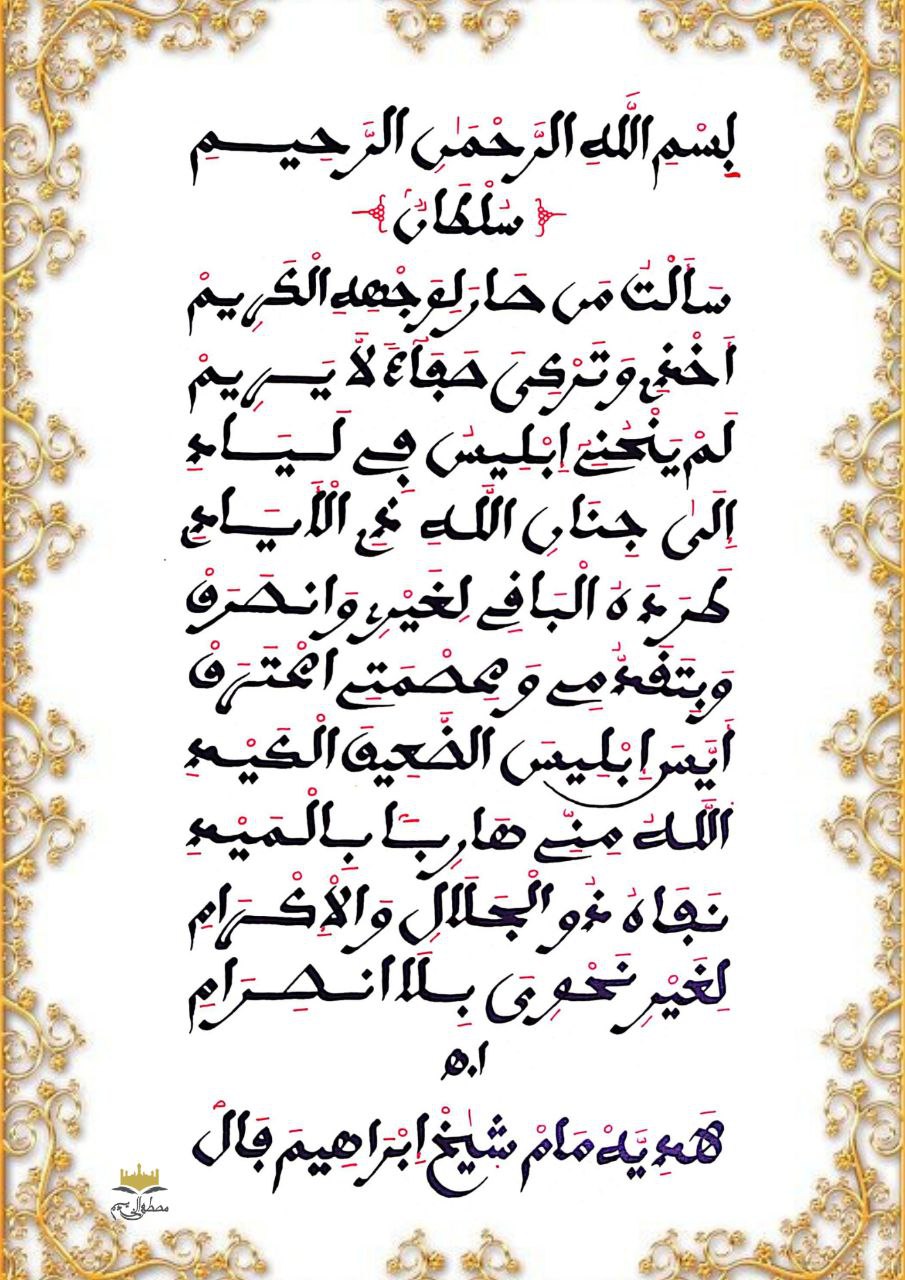 بِسْمِ اللَّهِ الرَّحْمَٰنِ الرَّحِيمِ
سُلْطَانٌ
سَأَلْتُ مَن صَارَ لِوَجْهِهِ الْكَرِيمْ
أَخْذِي وَتَرْكِيَ صَفَآءً لاَّ يَرِيمْ
لَمْ يَنْحُنِي إِبْلِيسُ فِي
إِلَىٰ جِنَانِ اللَّهِ ذِي الْأَيَادِي
طَرَدَهُ الْبَاقِي لِغَيْرِي وَانصَرَفْ
وَبِتَقَدُّمِي وَعِصْمَتِي اعْتَرَفْ
أَيَّسَ إِبْلِيسَ الضَّعِيفَ الْكَيْدِ
اللَّهُ مِنِّي هَارِبًا بِالْمَيْدِ
نَفَاهُ ذُو الْجَلَالِ وَالْإِكْرَامِ
لِغَيْرِ نَحْوِيَ بِلَا انصِرَامِ
ا.ه
هَدِيَّةْ مَامْ شَيْخْ إِبْرَاهِيمَ فَالْ